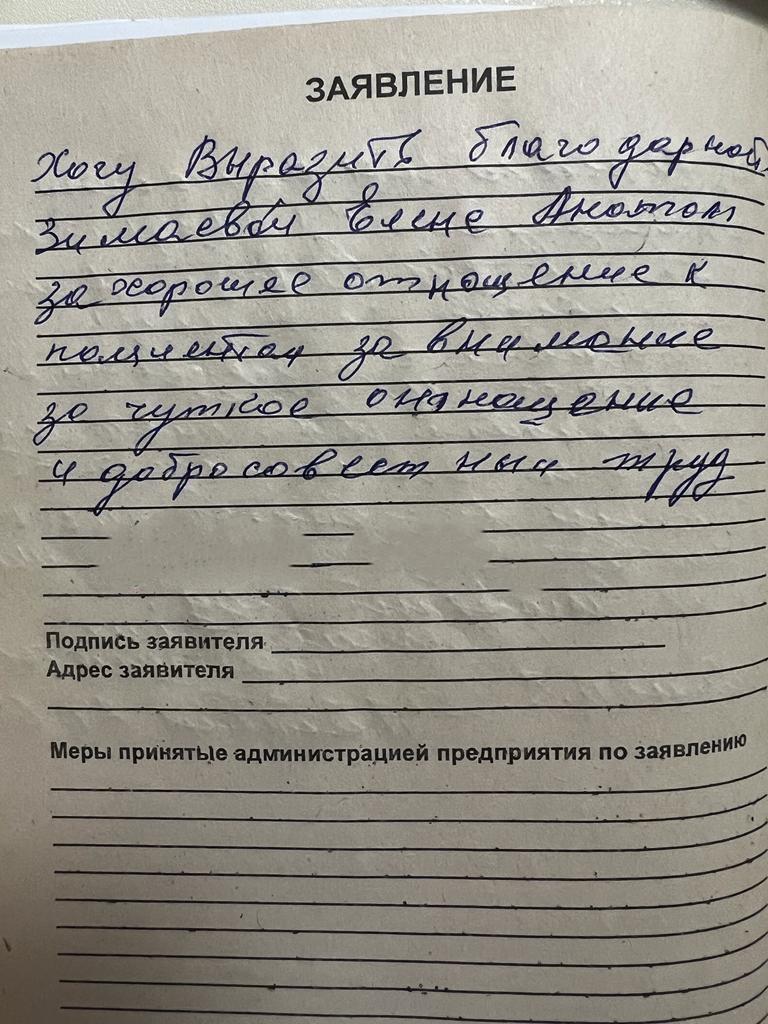 ЗАЯВЛЕНИЕ
Хочу Выразить благодарной
Зимаевой Елене Анатол
за хорошее отнощение к
пациентам за внимание
за чуткое
и добросовестный труд
Подпись заявителя
Адрес заявителя
Меры принятые администрацией предприятия по заявлению